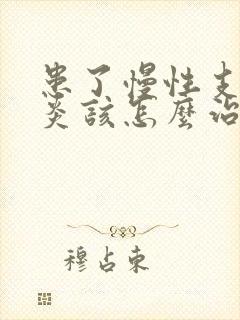 患了慢性支
炎該怎麼治
穆占東